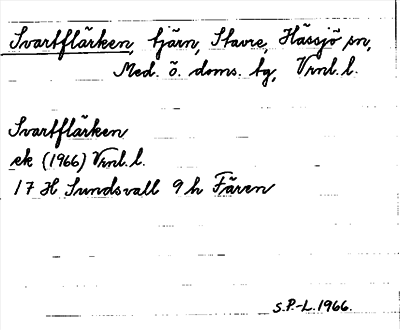 Svartflärken, tjärn, Stavre, Hässjö sn,
Med. ö. doms. tg, Vrnl. l.
Svartflärken
ek (1966) Vrnl. l.
17 H Sundsvall 9 h Fären
S.P.-L. 1966.